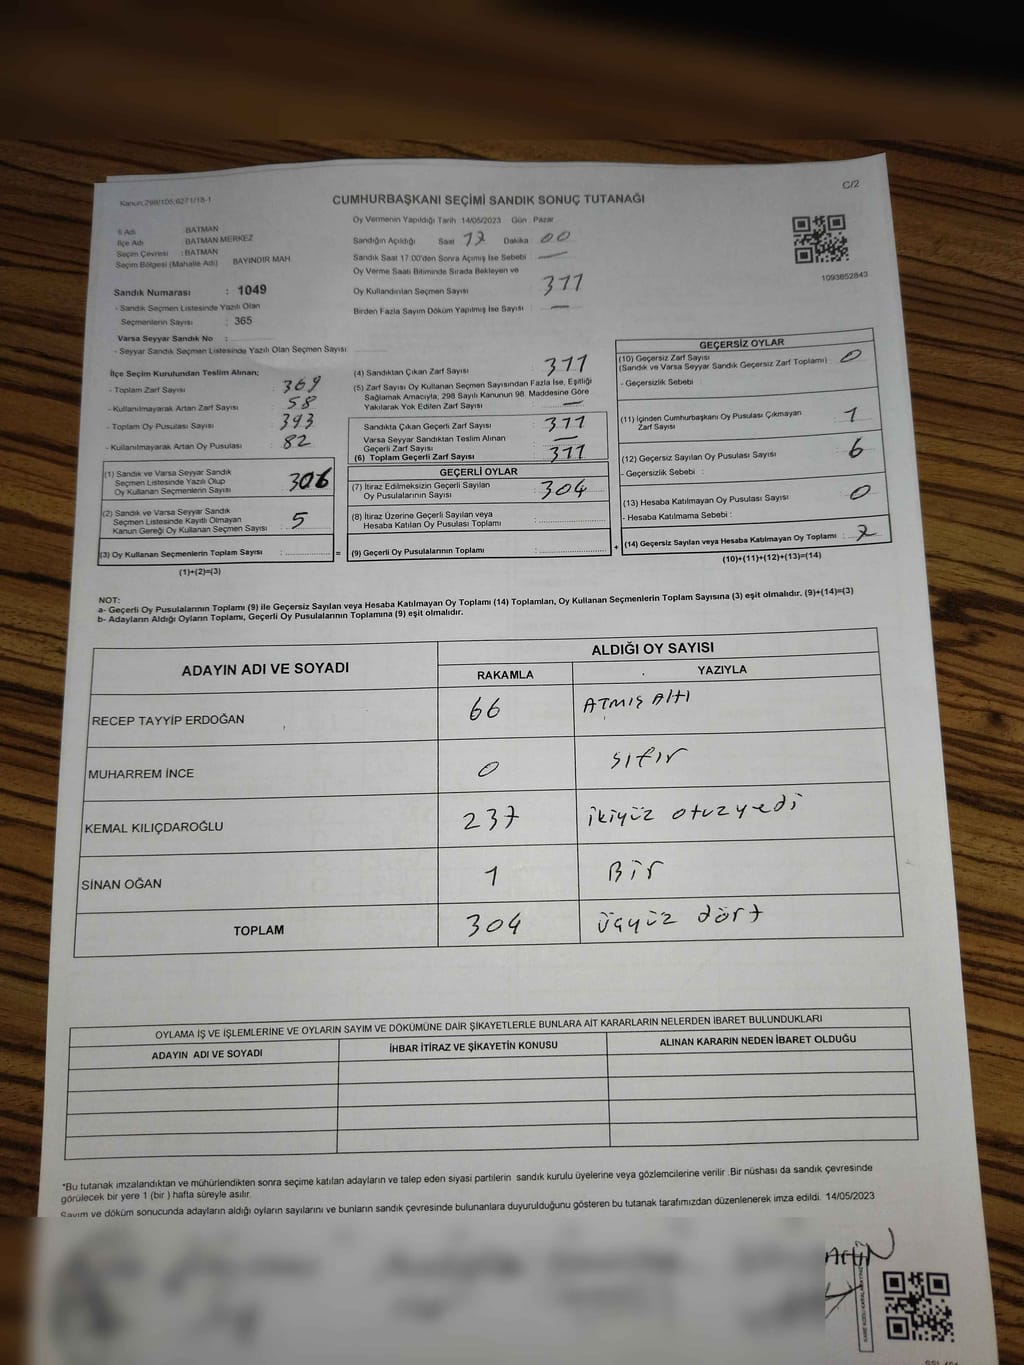 C/2
Kanun:298/105,6271/18-1
CUMHURBAŞKANI SEÇİMİ SANDIK SONUÇ TUTANAĞI
İl Adı : BATMAN
İlçe Adı : BATMAN MERKEZ
Seçim Çevresi : BATMAN
Seçim Bölgesi (Mahalle Adı) BAYINDIR MAH.
Sandık Numarası : 1049
- Sandık Seçmen Listesinde Yazılı Olan
Seçmenlerin Sayısı : 365
Varsa Seyyar Sandık No :
- Seyyar Sandık Seçmen Listesinde Yazılı Olan Seçmen Sayısı:
Oy Vermenin Yapıldığı Tarih 14/05/2023 Gün : Pazar
Sandığın Açıldığı Saat 17 Dakika 00
Sandık Saat 17.00'den Sonra Açımış İse Sebebi —
Oy Verme Saati Bitiminde Sırada Bekleyen ve
Oy Kullandırılan Seçmen Sayısı 311
Birden Fazla Sayım Döküm Yapılmış İse Sayısı : —
1093852843
İlçe Seçim Kurulundan Teslim Alınan;
- Toplam Zarf Sayısı : 369
- Kullanılmayarak Artan Zarf Sayısı : 58
- Toplam Oy Pusulası Sayısı : 393
- Kullanılmayarak Artan Oy Pusulası : 82
(1) Sandık ve Varsa Seyyar Sandık
Seçmen Listesinde Yazılı Olup
Oy Kullanan Seçmenlerin Sayısı : 306
(2) Sandık ve Varsa Seyyar Sandık
Seçmen Listesinde Kayıtlı Olmayan
Kanun Gereği Oy Kullanan Seçmen Sayısı : 5
(3) Oy Kullanan Seçmenlerin Toplam Sayısı : =
(1)+(2)=(3)
(4) Sandıktan Çıkan Zarf Sayısı : 311
(5) Zarf Sayısı Oy Kullanan Seçmen Sayısından Fazla İse, Eşitliği
Sağlamak Amacıyla, 298 Sayılı Kanunun 98. Maddesine Göre
Yakılarak Yok Edilen Zarf Sayısı : —
Sandıkta Çıkan Geçerli Zarf Sayısı : 311
Varsa Seyyar Sandıktan Teslim Alınan
Geçerli Zarf Sayısı : —
(6) Toplam Geçerli Zarf Sayısı : 311
GEÇERLİ OYLAR
(7) İtiraz Edilmeksizin Geçerli Sayılan
Oy Pusulalarının Sayısı : 304
(8) İtiraz Üzerine Geçerli Sayılan veya
Hesaba Katılan Oy Pusulası Toplamı :
(9) Geçerli Oy Pusulalarının Toplamı : +
GEÇERSİZ OYLAR
(10) Geçersiz Zarf Sayısı
(Sandık ve Varsa Seyyar Sandık Geçersiz Zarf Toplamı) : 0
- Geçersizlik Sebebi :
(11) İçinden Cumhurbaşkanı Oy Pusulası Çıkmayan
Zarf Sayısı : 1
(12) Geçersiz Sayılan Oy Pusulası Sayısı : 6
- Geçersizlik Sebebi :
(13) Hesaba Katılmayan Oy Pusulası Sayısı : 0
- Hesaba Katılmama Sebebi :
(14) Geçersiz Sayılan veya Hesaba Katılmayan Oy Toplamı : 7
(10)+(11)+(12)+(13)=(14)
NOT:
a- Geçerli Oy Pusulalarının Toplamı (9) ile Geçersiz Sayılan veya Hesaba Katılmayan Oy Toplamı (14) Toplamları, Oy Kullanan Seçmenlerin Toplam Sayısına (3) eşit olmalıdır. (9)+(14)=(3)
b- Adayların Aldığı Oyların Toplamı, Geçerli Oy Pusulalarının Toplamına (9) eşit olmalıdır.
ADAYIN ADI VE SOYADI ALDIĞI OY SAYISI
RAKAMLA YAZIYLA
RECEP TAYYİP ERDOĞAN 66 ATMIŞ ALTI
MUHARREM İNCE 0 sıfır
KEMAL KILIÇDAROĞLU 237 ikiyüz otuzyedi
SİNAN OĞAN 1 Bir
TOPLAM 304 üçyüz dört
OYLAMA İŞ VE İŞLEMLERİNE VE OYLARIN SAYIM VE DÖKÜMÜNE DAİR ŞİKAYETLERLE BUNLARA AİT KARARLARIN NELERDEN İBARET BULUNDUKLARI
ADAYIN ADI VE SOYADI İHBAR İTİRAZ VE ŞİKAYETİN KONUSU ALINAN KARARIN NEDEN İBARET OLDUĞU
*Bu tutanak imzalandıktan ve mühürlendikten sonra seçime katılan adayların ve talep eden siyasi partilerin sandık kurulu üyelerine veya gözlemcilerine verilir .Bir nüshası da sandık çevresinde
görülecek bir yere 1 (bir ) hafta süreyle asılır.
Sayım ve döküm sonucunda adayların aldığı oyların sayılarını ve bunların sandık çevresinde bulunanlara duyurulduğunu gösteren bu tutanak tarafımızdan düzenlenerek imza edildi. 14/05/2023